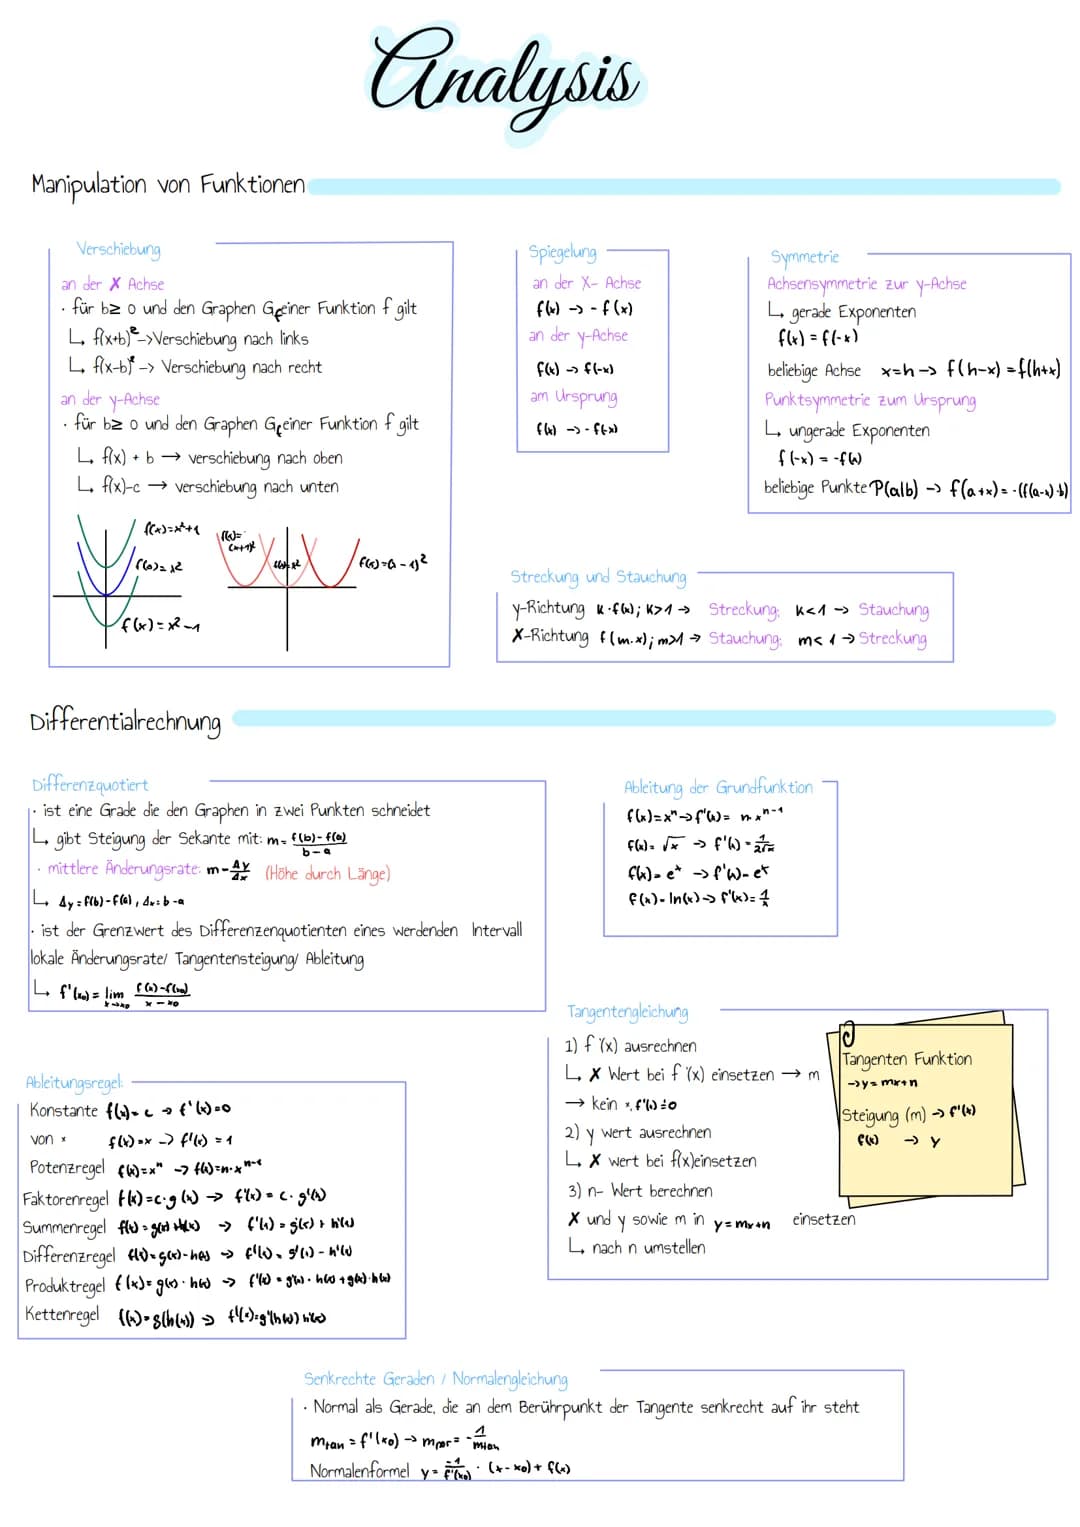 Analysis
Manipulation von Funktionen
Verschiebung
an der X Achse
· für b≥ 0 und den Graphen Gf einer Funktion f gilt
↳ f(x+b)² -> Verschiebung nach links
↳ f(x-b)² -> Verschiebung nach recht
an der y-Achse
· für b≥ 0 und den Graphen Gf einer Funktion f gilt
↳ f(x) + b → verschiebung nach oben
↳ f(x)-c → verschiebung nach unten
f(x)=x²+1
f(x)=x²
f(x)=x²-1
f(x)=
(x+1)²
f(x)=x²
f(x)=(x-1)²
Spiegelung
an der X- Achse
f(x) → -f(x)
an der y-Achse
f(x) → f(-x)
am Ursprung
f(x) → -f(-x)
Symmetrie
Achsensymmetrie zur y-Achse
↳ gerade Exponenten
f(x) = f(-x)
beliebige Achse x=h → f(h-x) = f(h+x)
Punktsymmetrie zum Ursprung
↳ ungerade Exponenten
f(-x) = -f(x)
beliebige Punkte P(a|b) → f(a+x) = -(f(a-x)-b)
Streckung und Stauchung
y-Richtung k·f(x); k>1 → Streckung; k<1 → Stauchung
X-Richtung f(m·x); m>1 → Stauchung; m<1 → Streckung
Differentialrechnung
Differenzquotiert
· ist eine Grade die den Graphen in zwei Punkten schneidet
↳ gibt Steigung der Sekante mit: m= f(b)-f(a) / b-a
· mittlere Änderungsrate: m= Δy/Δx (Höhe durch Länge)
↳ Δy = f(b)-f(a), Δx = b-a
· ist der Grenzwert des Differenzenquotienten eines werdenden Intervall
lokale Änderungsrate/ Tangentensteigung/ Ableitung
↳ f'(x₀) = lim x→x₀ f(x)-f(x₀) / x-x₀
Ableitung der Grundfunktion
f(x)=xⁿ → f'(x)= n·xⁿ⁻¹
f(x)= √x → f'(x)= 1/2√x
f(x)= eˣ → f'(x)= eˣ
f(x)= ln(x) → f'(x)= 1/x
Ableitungsregel:
Konstante f(x)= c → f'(x)=0
von x f(x)=x → f'(x) = 1
Potenzregel f(x)=xⁿ → f(x)=n·xⁿ⁻¹
Faktorenregel f(x)=c·g(x) → f'(x) = c·g'(x)
Summenregel f(x)=g(x)+h(x) → f'(x) = g'(x) + h'(x)
Differenzregel f(x)=g(x)-h(x) → f'(x) = g'(x) - h'(x)
Produktregel f(x)= g(x)·h(x) → f'(x) = g'(x)·h(x)+g(x)·h(x)
Kettenregel f(x)=g(h(x)) → f'(x)=g'(h(x)) h'(x)
Tangentengleichung
1) f '(x) ausrechnen
↳ X Wert bei f '(x) einsetzen → m
→ kein x, f'(x)=0
2) y wert ausrechnen
↳ X wert bei f(x)einsetzen
3) n- Wert berechnen
X und y sowie m in y=mx+n einsetzen
↳ nach n umstellen
Tangenten Funktion
→y=mx+n
Steigung (m) → f'(x)
f(x) → y
Senkrechte Geraden / Normalengleichung
· Normal als Gerade, die an dem Berührpunkt der Tangente senkrecht auf ihr steht
mtan = f'(x₀) → mnor = - 1/mtan
Normalenformel y = -1/f'(x₀) · (x-x₀) + f(x)